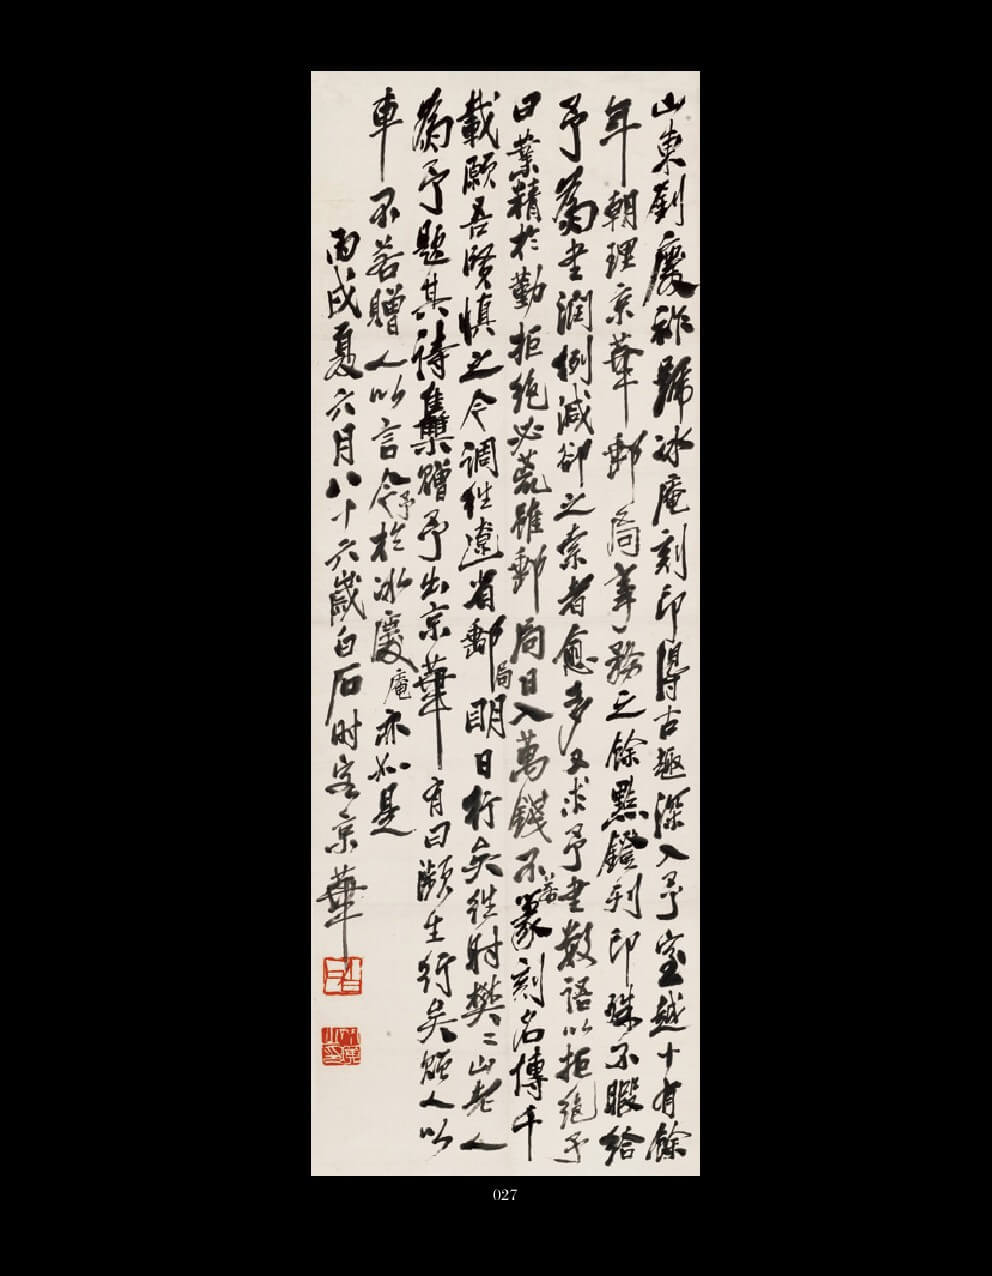 山東劉慶祚號冰庵刻印得古趣深入予室越十有餘
年朝理京華郵局事務之餘點鐙刊印殊不暇給
予為書潤例減卻之索者愈多又求予書數語以拒絕予
曰業精於勤拒絕必荒雖郵局日入萬錢不若篆刻名傳千
載願吾賢慎之今調往遼省郵局明日行矣往時樊二山老人
為予題其詩集贈予出京華有曰瀕生行矣贈人以
車不若贈人以言今予於冰慶庵亦如是
丙戌夏六月八十六歲白石時客京華
027